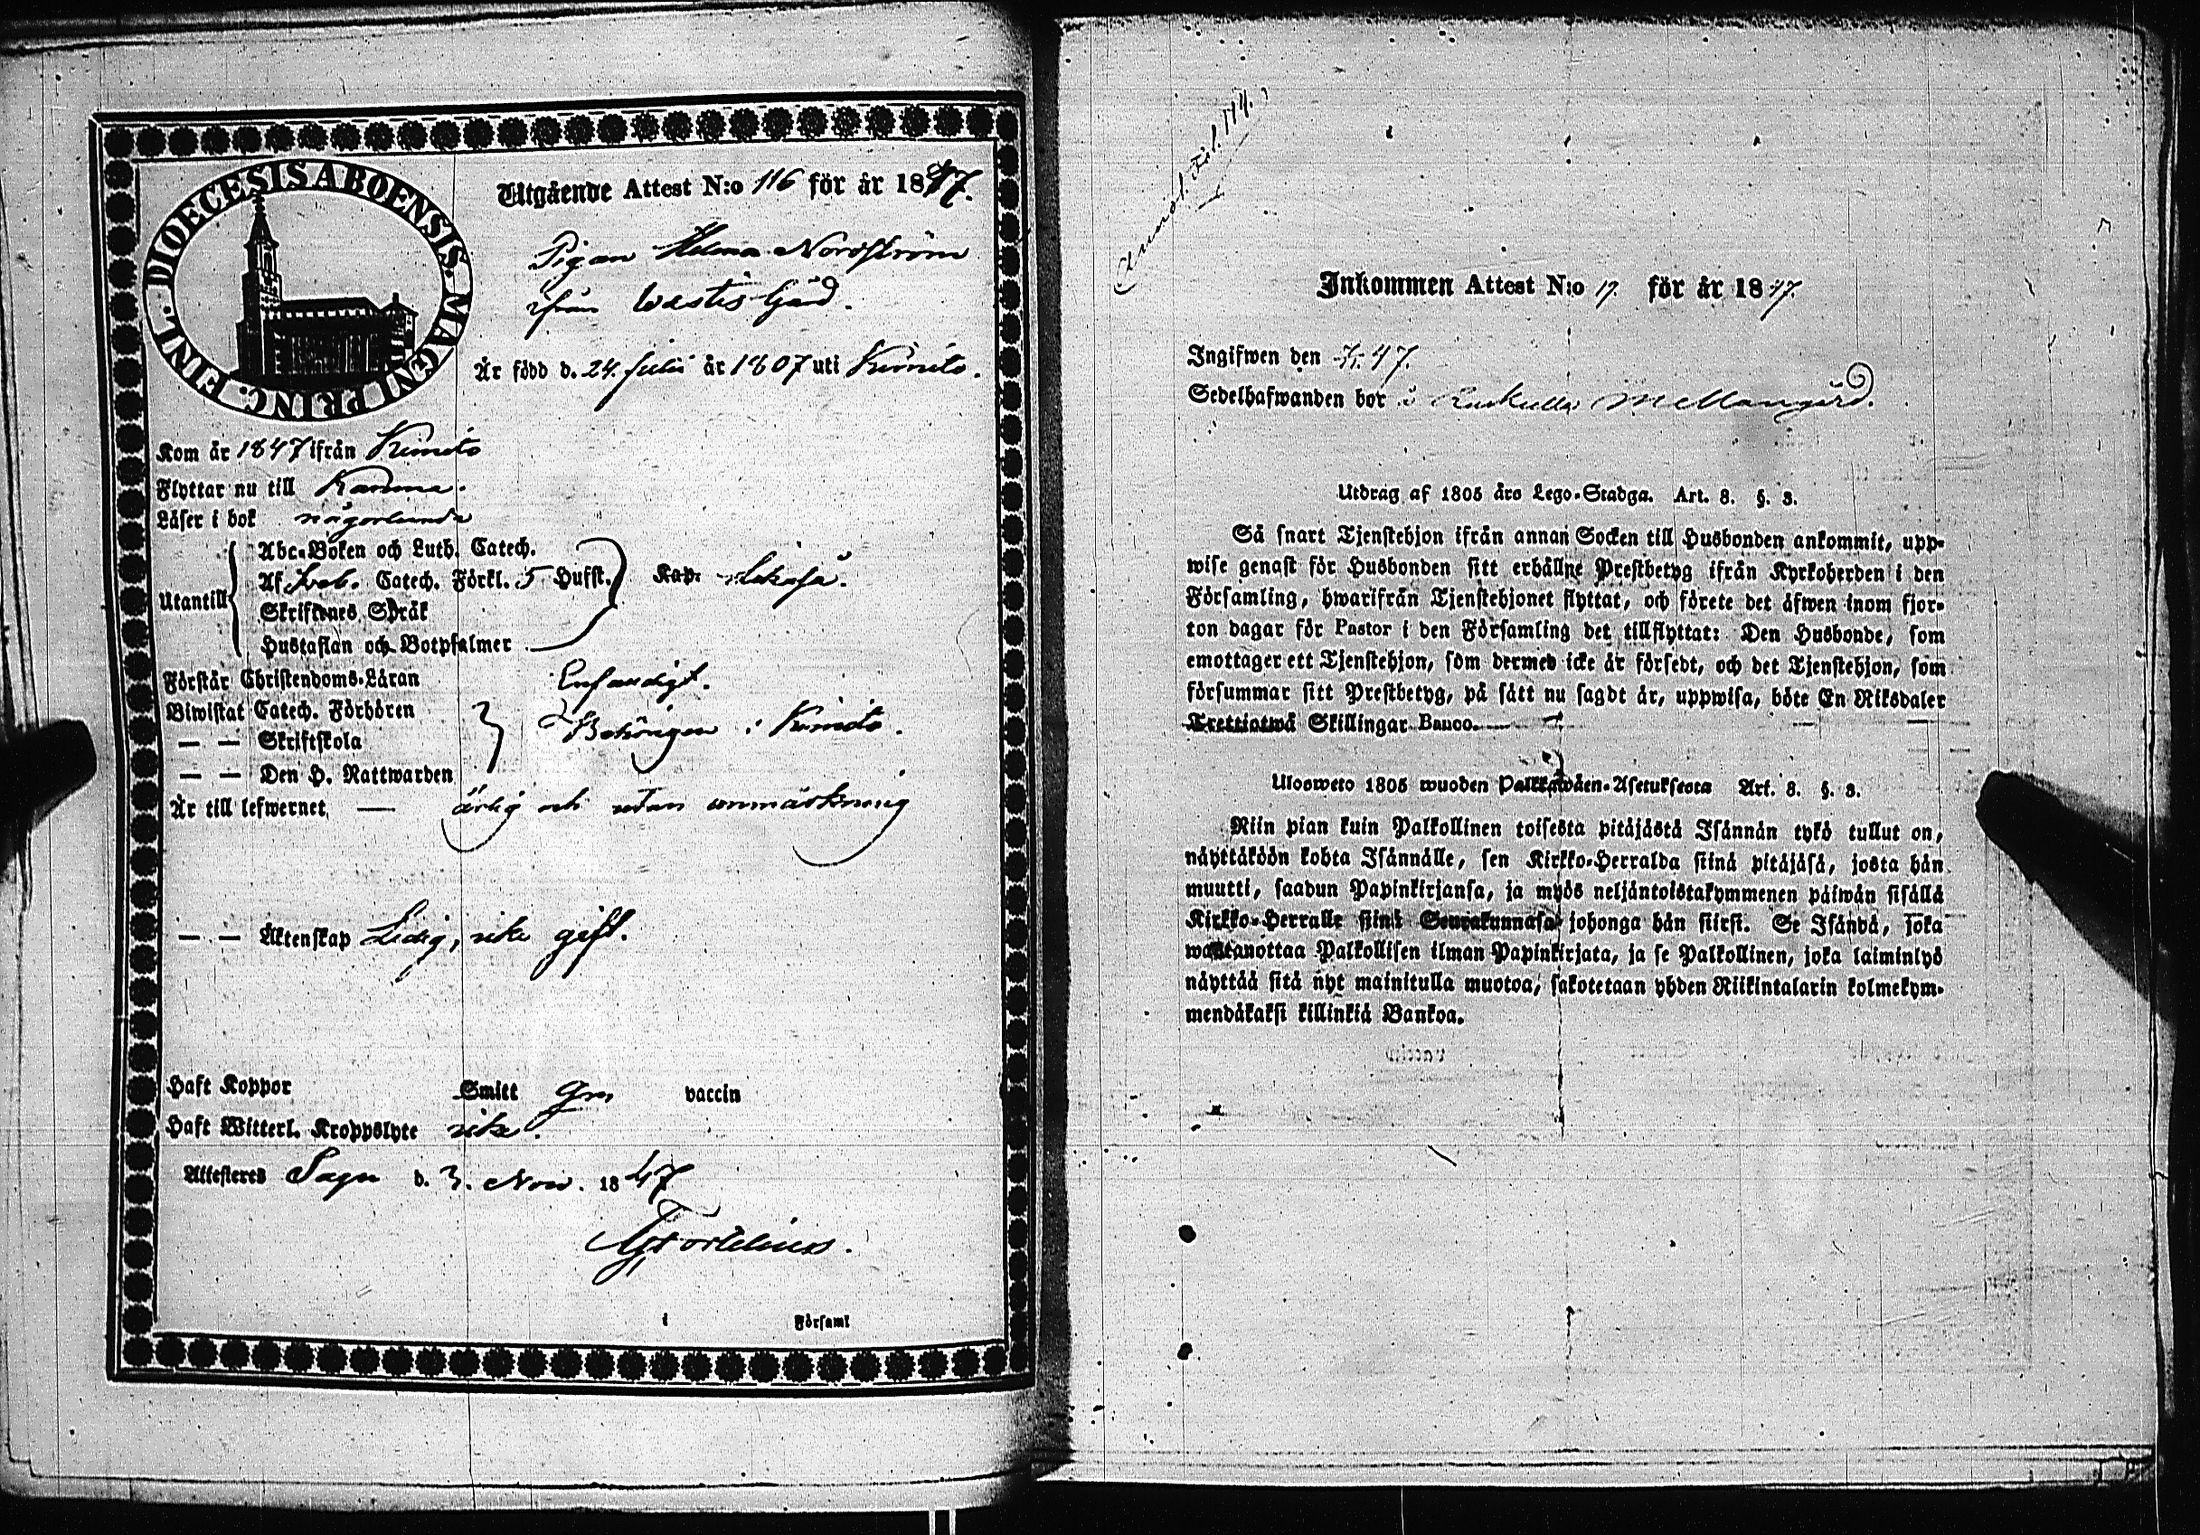 DIOECESIS ABOENSIS. MAGNI PRINC. FINL.
Utgående Attest N:o 116 för år 1847.
Pigan Helena Nordström
ifrån Westis Gård.
Är född d. 24. Julii år 1807 uti Kimito.
Kom år 1847 ifrån Kimito
Flyttar nu till
Läser i bok någorlunda
Utantill
Abc-Boken och Luth. Catech.
Af Sveb. Catech. Förkl. 5 Hufst. Kap.
Skriftenes Språk
Hustaflan och Botpsalmer
Förstår Christendoms-Läran Enfaldigt.
Biwistat Catech. Förhören
— — Skriftskola Behörigen i Kimito.
— — Den H. Nattwarden
Är till lefwernet — ärlig och utan anmärkning
— — Äktenskap Ledig, icke gift.
Haft Koppor Smitt gm vaccin
Haft Witterl. Kroppslyte icke.
Attesteras Sagu d. 3. Nov. 1847
i Församl
Annot. Fol. 114.
Inkommen Attest N:o 17. för år 1847.
Ingifwen den 47.
Sedelhafwanden bor i Mellangård.
Utdrag af 1805 års Lego-Stadga. Art. 8. §. 3.
Så snart Tjenstehjon ifrån annan Socken till Husbonden ankommit, upp-
wise genast för Husbonden sitt erhållne Prestbetyg ifrån Kyrkoherden i den
Församling, hwarifrån Tjenstehjonet flyttat, och förete det äfwen inom fjor-
ton dagar för Pastor i den Församling det tillflyttat: Den Husbonde, som
emottager ett Tjenstehjon, som dermed icke är försedt, och det Tjenstehjon, som
försummar sitt Prestbetyg, på sätt nu sagdt är, uppwisa, böte En Riksdaler
Trettiotwå Skillingar Banco.
Ulosweto 1805 wuoden Palkkawäen-Asetuksesta Art. 8. §. 3.
Niin pian kuin Palkollinen toisesta pitäjästä Isännän tykö tullut on,
näyttäköön kohta Isännälle, sen Kirkko-Herralda siinä pitäjäsä, josta hän
muutti, saadun Papinkirjansa, ja myös neljäntoistakymmenen päiwän sisällä
Kirkko-Herralle siinä Seurakunnasa johonga hän siirsi. Se Isändä, joka
wastanottaa Palkollisen ilman Papinkirjata, ja se Palkollinen, joka laiminlyö
näyttää sitä nyt mainitulla muotoa, sakotetaan yhden Riikintalarin kolmekym-
mendäkaksi killinkiä Bankoa.